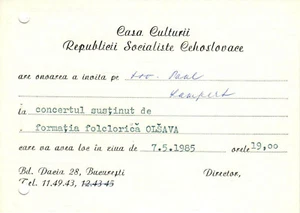 Casa Culturii
Republicii Socialiste Cehoslovace
are onoarea a invita pe tov. Paul
Kampert
la concertul susținut de
formația folclorică OLŠAVA
care va avea loc în ziua de 7.5.1985 orele 19,00
Bd. Dacia 28, București Director,
Tel. 11.49.43, 12.43.45